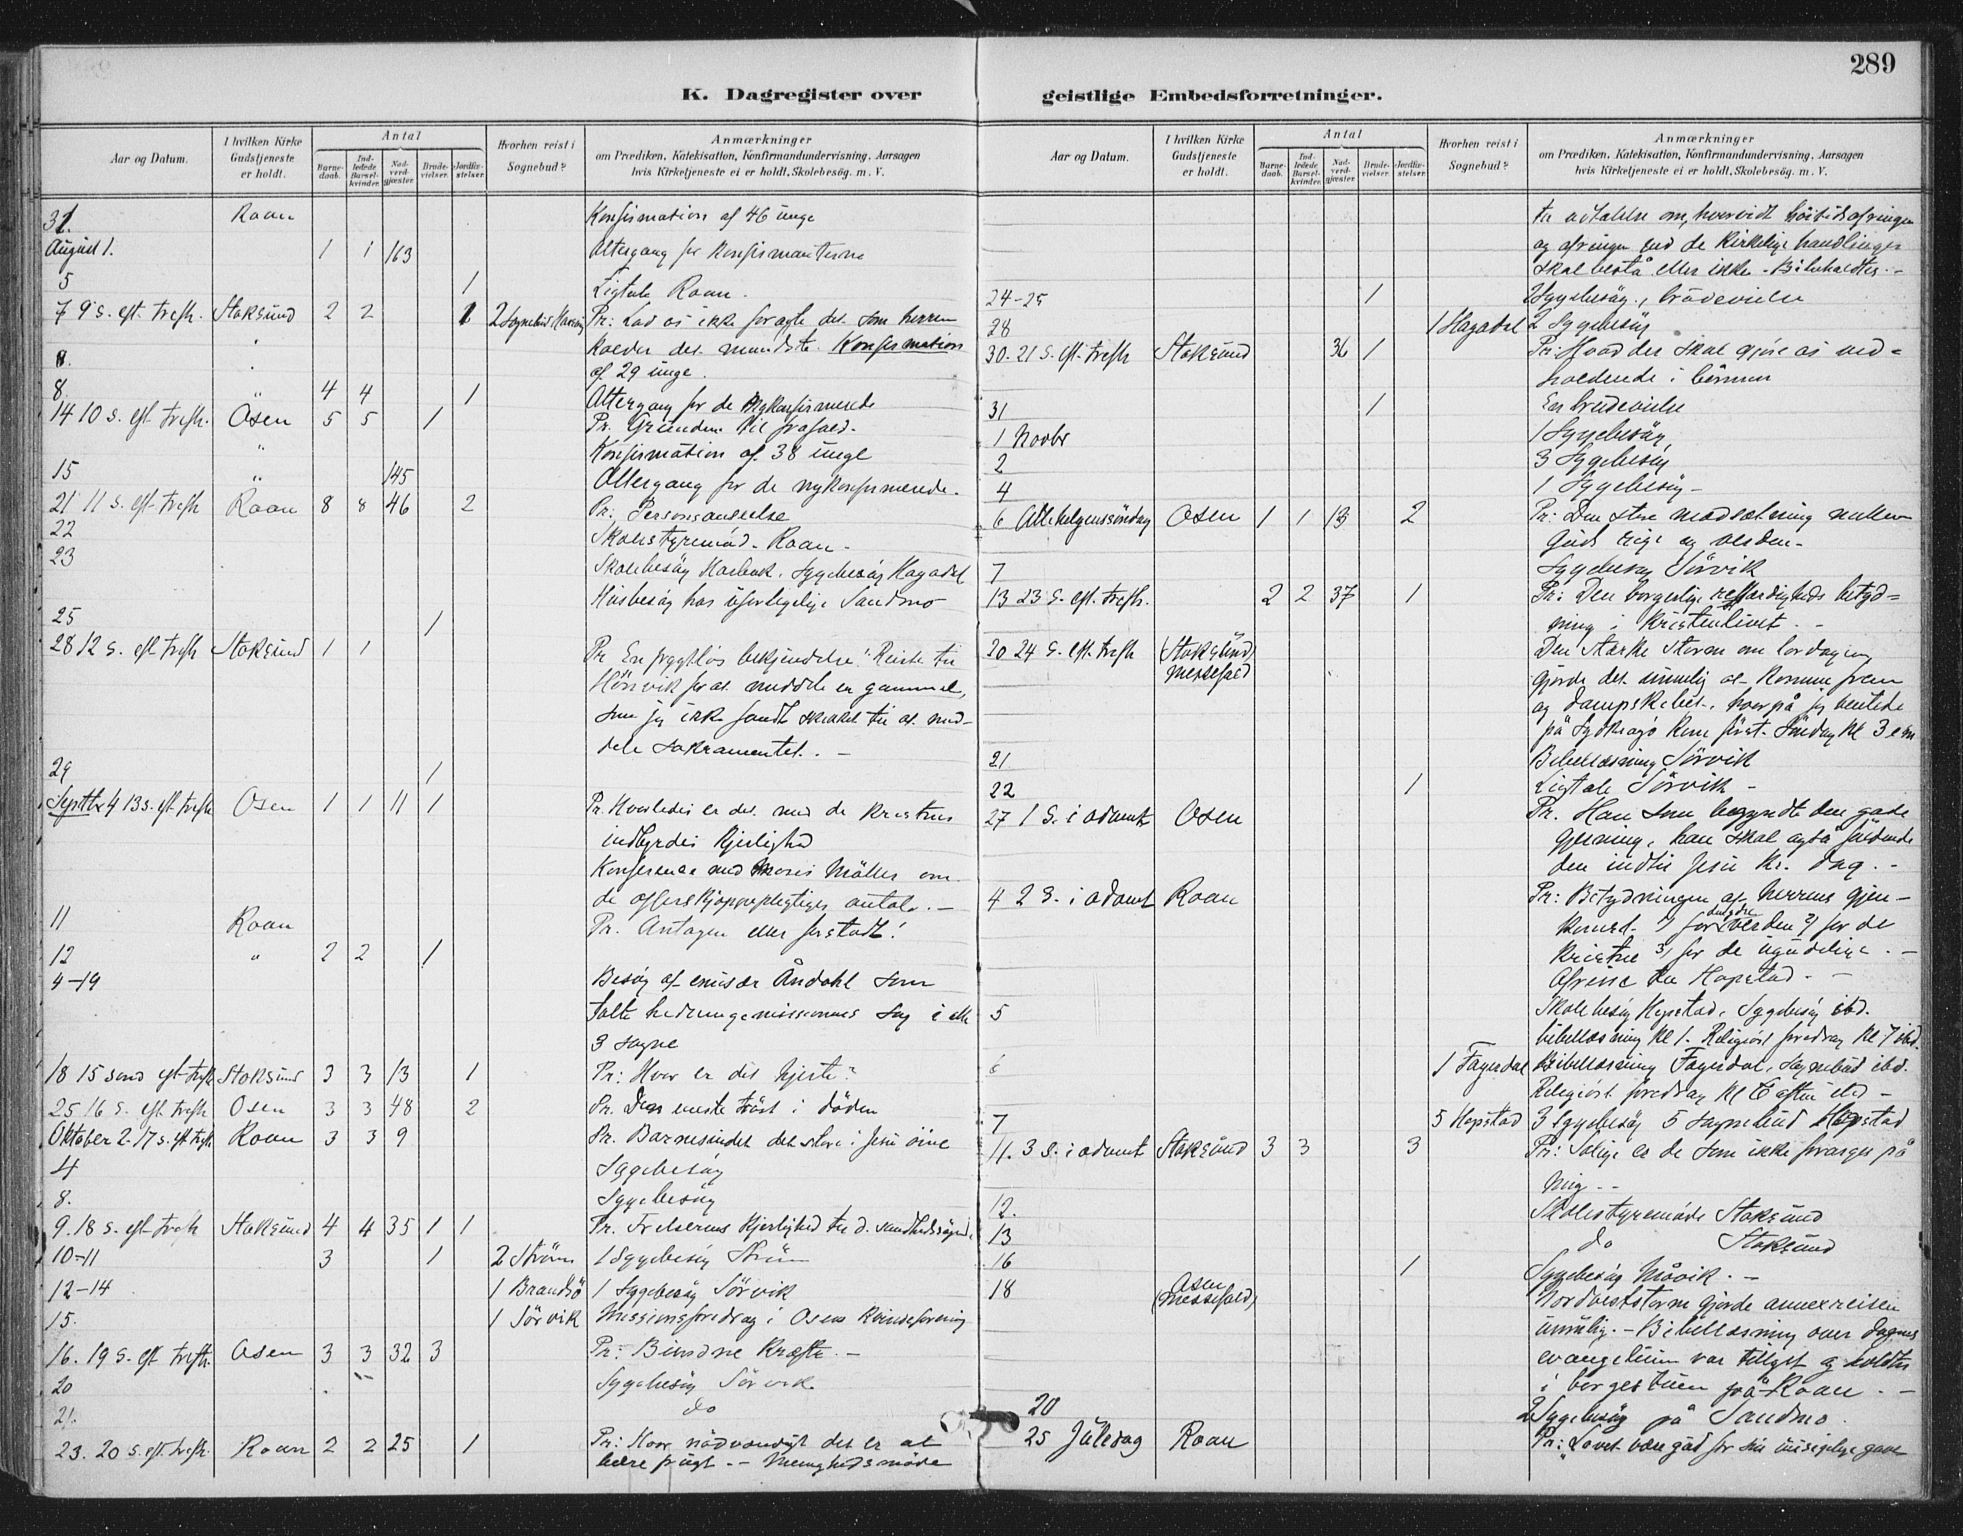 289
K. Dagregister over geistlige Embedsforretninger.
Aar og Datum.
I hvilken Kirke Gudstjeneste er holdt.
Antal
Barnedaab.
Indledede Barselkvinder.
Nadverdgjæster.
Brudevielser.
Jordfæstelser.
Hvorhen reist i Sognebud?
Anmærkninger
om Prædiken, Katekisation, Konfirmandundervisning, Aarsagen
hvis Kirketjeneste ei er holdt, Skolebesøg, m. V.
31. Roan Konfirmation af 46 unge
August 1. 1 1 163 Altergang for Konfirmanterne
5 1 Ligtale Roan.
7 9 s. eft. trefh. Stoksund 2 2 1 2 Sognebud Pr: Lad os ikke foragte det som herren
kalder det mindste. Konfirmation
8. af 29 unge.
8 4 4 1 Altergang for de Nykonfirmerede
14 10 s. eft. trefh. Osen 5 5 1 Pr. Grunden til frafald.
" Konfirmation af 38 unge
15 " 145 Altergang for de nykonfirmerede.
21 11 s. eft trefh Roan 8 8 46 2 Pr: Personsanseelse
22 Skolestyremöd. Roan.
23 Skolebesög Sygebesög Hagadal
Husbesög hos Sandmo
25 1
28 12 s. eft trefh Stoksund 1 1 Pr En frygtlös bekjendelse! Reiste til
for at meddele en gammel,
som jeg ikke fandt skikket til at med-
dele sakramentet. —
29 1
Septbr 4 13 s. eft trefh Osen 1 1 11 1 Pr. Hvorledes er det med de kristnes
indbyrdes Kjerlighed
Konference med Möller om
de antal. —
11 Roan Pr. Antagen eller forstödt!
12 " 2 2 1
4–19 Besög af emisær Åndahl som
talte hedningemissionens sag i alle
3 sogne
18 15 sönd eft. trefh Stoksund 3 3 13 1 Pr: Hvor er dit hjerte?
25 16 s. eft. trefh Osen 3 3 48 2 Pr. Den eneste tröst i döden
Oktober 2. 17 s. eft trefh. Roan 3 3 9 Pr. Barnesindet det store i Jesu öine
4 Sygebesög
8. Sygebesög
9. 18 s. eft trefh Stoksund 4 4 35 1 1 Pr. Frelserens Kjerlighed til d.
10–11 3 1 2 Ström 1 Sygebesög Ström
12–14 1 Brandsö 1 Sygebesög Sörvik
15. 1 Sörvik Missionsforedrag i Osens Kvindeforening
16. 19 s. eft trefh. Osen 3 3 32 3 Pr: Kræfter. —
20 Sygebesög Sörvik
21. do
23. 20 s. eft. trefh. Roan 2 2 25 1 Pr: Hvor nödvendigt det er at
bære frugt. — Menighedsmöde
Aar og Datum.
I hvilken Kirke Gudstjeneste er holdt.
Antal
Barnedaab.
Indledede Barselkvinder.
Nadverdgjæster.
Brudevielser.
Jordfæstelser.
Hvorhen reist i Sognebud?
Anmærkninger
om Prædiken, Katekisation, Konfirmandundervisning, Aarsagen
hvis Kirketjeneste ei er holdt, Skolebesøg, m. V.
til udtalelse om, hvorvidt höitidsofringen
og ofringen ved de Kirkelige handlinger
skal bestå eller ikke. – Bibeholdtes. –
24–25 1 2 Sygebesög, brudevielse
28 1 Hagadal 2 Sygebesög
30. 21 s. eft. trefh Stoksund 36 1 Pr: Hvad der skal gjöre os ved-
holdende i bönnen
31 1 En brudevielse
1 Novbr 1 Sygebesög,
2 3 Sygebesög
4 1 Sygebesög –
6 Allehelgenssöndag Osen 1 1 13 2 Pr: Den store modsætning mellem
Guds rige og verden.
7 Sygebesög Sörvik
13 23 s. eft. trefh. 2 2 37 1 Pr: Den borgerlige retfærdigheds betyd-
ning i Kristenlivet. –
20 24 s. eft. trefh (Stoksund) Messefald Den stærke storm om lördagen
gjorde det umulig at komme frem
og dampskibet, hvorpå jeg ventede
på kom först Söndag Kl 3 em
21 Bibellæsning Sörvik
22 1 Ligtale Sörvik –
27 1 s. i advent Osen Pr. Han som begyndte den gode
gjerning, han skal også fuldende
den indtil Jesu Kr. dag. –
4 2 s. i advent Roan Pr: Betydningen af herrens gjen-
komst. 1) for verden 2) for de
kristne 3) for de ugudelige. –
Afreise til Hopstad. –
5 Skolebesög Hopstad, Sygebesög ibd.
bibellæsning kl 1. Religiöst foredrag kl 7 ibd.
6 1 Fagerdal Bibellæsning Fagerdal, Sognebud ibd.
Religiöst foredrag Kl 6 eftm ibd –
7 5 Hopstad 3 Sygebesög 5 Sognebud Hopstad
11. 3 s. i advent Stoksund 3 3 3 Pr: Salige er de som ikke forarges på
mig. –
12. Skolestyremöde Stoksund
13 do Stoksund
16 1 Sygebesög –
18 Osen (Messefald) Nordveststorm gjorde annexreisen
umulig. – Bibellæsning over dagens
evangelium var tillyst og holdtes
i borgestuen på Roan. –
20 2 Sygebesög på Sandmo.
25 Juledag Roan Pr: Lovet være gud for sin uusigelige gave